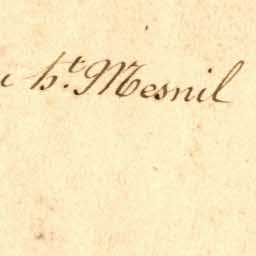 h.t Mesnil